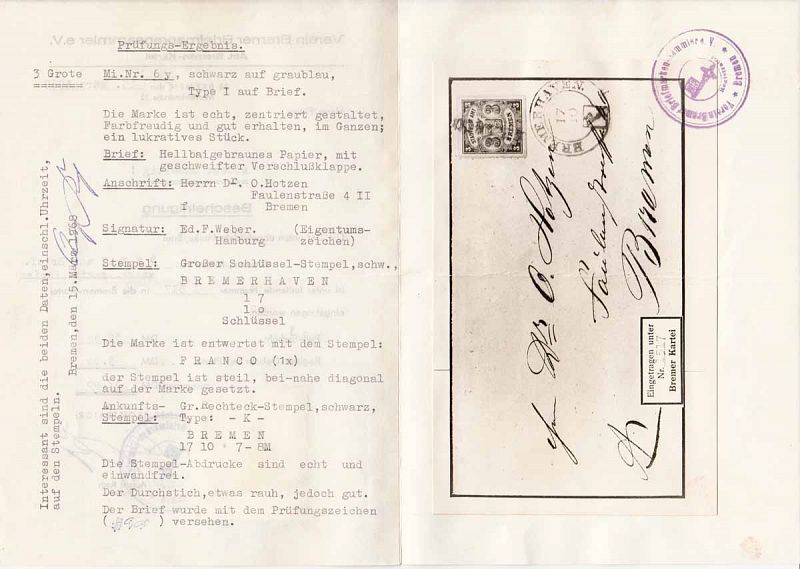 Prüfungs-Ergebnis.
3 Grote Mi.Nr. 6 y, schwarz auf graublau,
Type I auf Brief.
Die Marke ist echt, zentriert gestaltet,
Farbfreudig und gut erhalten, im Ganzen;
ein lukratives Stück.
Brief: Hellbaigebraunes Papier, mit
geschweifter Verschlußklappe.
Anschrift: Herrn Dr. O.Hotzen
Faulenstraße 4 II
f Bremen
Signatur: Ed.F.Weber. (Eigentums-
Hamburg zeichen)
Stempel: Großer Schlüssel-Stempel, schw.,
BREMERHAVEN
17
1o
Schlüssel
Die Marke ist entwertet mit dem Stempel:
FRANCO (1x)
der Stempel ist steil, bei-nahe diagonal
auf der Marke gesetzt.
Ankunfts- Gr.Rechteck-Stempel, schwarz,
Stempel: Type: - K -
BREMEN
17 10 7-8M
Die Stempel-Abdrucke sind echt und
einwandfrei.
Der Durchstich, etwas rauh, jedoch gut.
Der Brief wurde mit dem Prüfungszeichen
( ) versehen.
Interessant sind die beiden Daten, einschl. Uhrzeit,
auf den Stempeln.
Bremen, den 15. März 1968
Verein Bremer Briefmarkensammler e.V. * Bremen *
BREMERHAVEN
17
10
Dr. O. Hotzen
Bremen
Eingetragen unter
Nr. 1517
Bremer Kartei